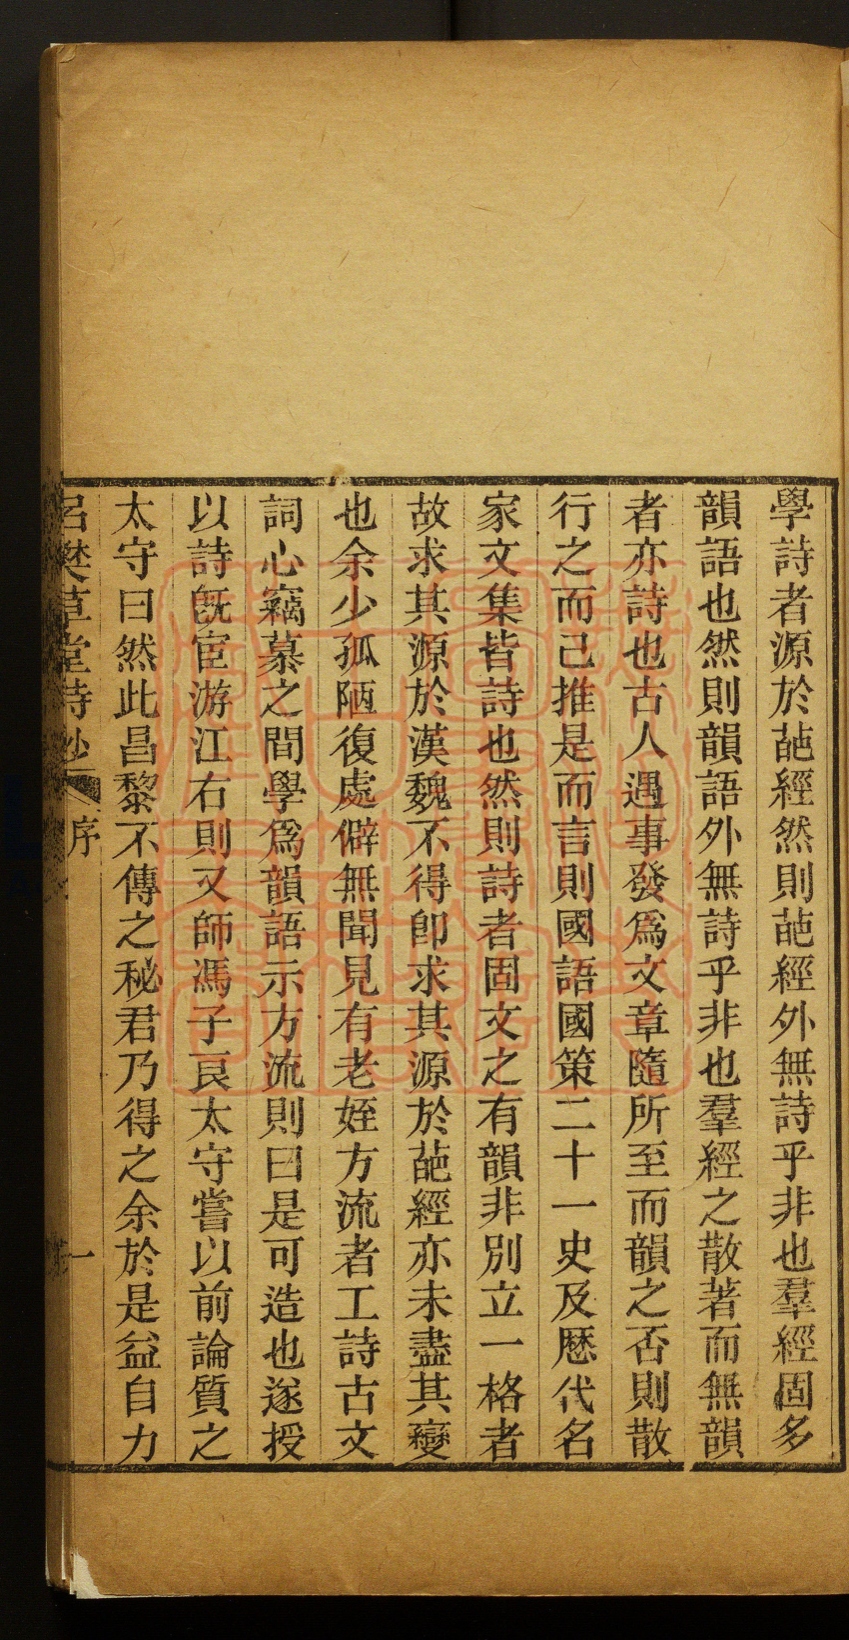 學詩者源於葩經然則葩經外無詩乎非也羣經固多
韻語也然則韻語外無詩乎非也羣經之散著而無韻
者亦詩也古人遇事發爲文章隨所至而韻之否則散
行之而己推是而言則國語國策二十一史及歷代名
家文集皆詩也然則詩者固文之有韻非別立一格者
故求其源於漢魏不得卽求其源於葩經亦未盡其變
也余少孤陋復處僻無聞見有老姪方流者工詩古文
詞心竊慕之間學爲韻語示方流則曰是可造也遂授
以詩旣宦游江右則又師馮子良太守嘗以前論質之
太守曰然此昌黎不傳之秘君乃得之余於是益自力
樊草堂詩抄
序
一